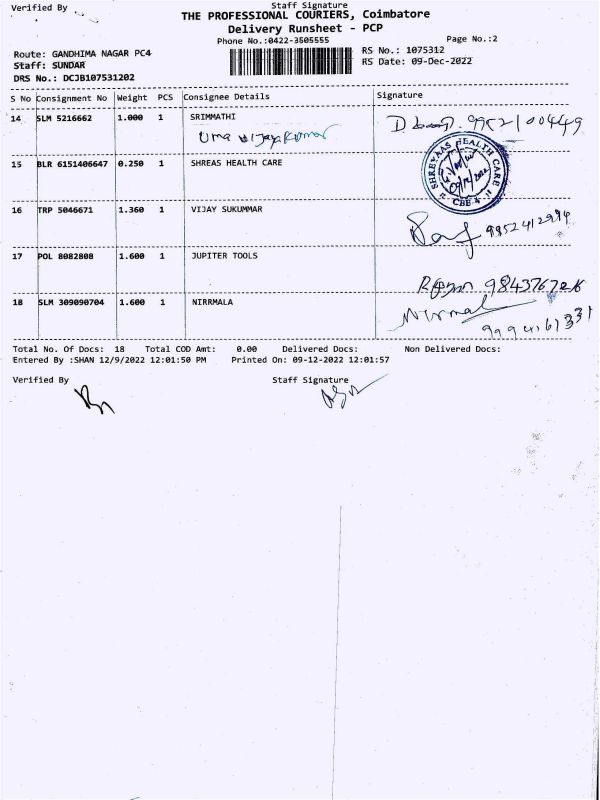 Verified By Staff Signature
THE PROFESSIONAL COURIERS, Coimbatore
Delivery Runsheet - PCP
Phone No.:0422-3505555 Page No.:2
Route: GANDHIMA NAGAR PC4 RS No.: 1075312
Staff: SUNDAR RS Date: 09-Dec-2022
DRS No.: DCJB107531202
S No Consignment No Weight PCS Consignee Details Signature
14 SLM 5216662 1.000 1 SRIMMATHI
Uma vijayakumar
15 BLR 6151406647 0.250 1 SHREAS HEALTH CARE
SHREYAAS HEALTH CARE
CBE-4
16 TRP 5046671 1.360 1 VIJAY SUKUMMAR
9952412994
17 POL 8082808 1.600 1 JUPITER TOOLS
18 SLM 309090704 1.600 1 NIRRMALA
Nirmal
Total No. Of Docs: 18 Total COD Amt: 0.00 Delivered Docs: Non Delivered Docs:
Entered By :SHAN 12/9/2022 12:01:50 PM Printed On: 09-12-2022 12:01:57
Verified By Staff Signature